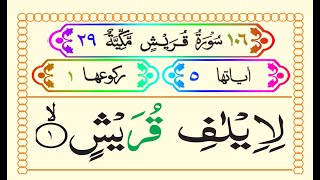 ١٠٦ سُوْرَةُ قُرَيْشٍ مَّكِّيَّةٌ ٢٩
اٰیاتها ٥ رکوعها ١
لِاِيْلٰفِ قُرَيْشٍۙ ١